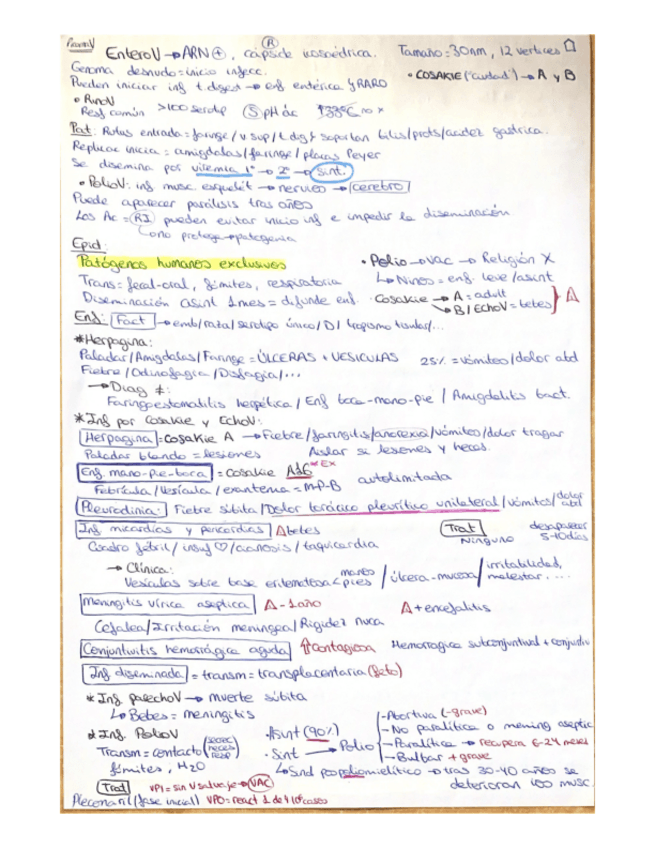 PicornaV
EnteroV → ARN⊕, cápside icosaédrica. Ⓡ Tamaño: 30nm, 12 vertices
Genoma desnudo = inicio infecc.
Pueden iniciar inf t.digest → enf entérica ¡RARO • COSAKIE ("ciudad") → A y B
• RinoV
Resf común >100 serotp Ⓢ pH ác 33ºC
Pat: Rutas entrada = faringe / v sup / t.dig y soportan bilis/prots/acidez gástrica.
Replicac inicia: amigdalas/faringe/placas Peyer
Se disemina por viremia 1ª → 2ª → sint.
• PolioV: inf musc esquelét → nervios → cerebro
Puede aparecer parálisis tras años
Los Ac = RI pueden evitar inicio inf e impedir la diseminación
→ no protege → patogenia
Epid:
Patógenos humanos exclusivos
• Polio → vac → Religión X
↳ Niños = enf. leve/asint
Trans = fecal-oral, fómites, respiratoria
Diseminación asint 1 mes = difunde enf. Cosakie → A = adult
→ B / EchoV = bebes } Δ
Enf: Fact → emb/raza/serotipo único/D/ tropismo tisular/...
*Herpagina:
Paladar/Amigdalas/Faringe = ÚLCERAS + VESICULAS 25% = vómiteo/dolor abd
Fiebre/Odinofagia/Disfagia/...
→ Diag ≠:
Faringoestomatitis herpética / Enf boca-mano-pie / Amigdalitis bact.
* Inf por Cosakie y EchoV:
Herpagina = Cosakie A → Fiebre/faringitis/anorexia/vómiteo/dolor tragar
Paladar blando = lesiones Aislar de lesiones y heces.
Enf mano-pie-boca = Cosakie A16 *Ex
Febrícula/Vesícula/exantema = M-P-B autolimitada
Pleurodinia: Fiebre súbita/Dolor torácico pleurítico unilateral/vómitos/dolor abd
Inf miocardias y pericordias Δbebes
Trat Ninguno desaparece 5-10días
Cuadro febril/insuf ♡/cianosis/taquicardia
→ Clínica:
Vesículas sobre base eritematosa < manos pies / úlcera-mucosa / irritabilidad, malestar....
Meningitis vírica aseptica Δ-1año Δ+encefalitis
Cefalea/Irritación meningea/Rigidez nuca
Conjuntivitis hemorrágica aguda ↑Contagiosa Hemorragica subconjuntival + conjuntiv
Inf diseminada = transm = transplacentaria (feto)
* Inf parechoV → muerte súbita
↳ Bebes = meningitis
* Inf. PolioV
Transm = contacto (secrec heces resp
fómites, H₂O
• Asint (90%)
• Sint → Polio
- Abortiva (-grave)
- No paralítica o mening aseptic
- Paralítica → recupera 6-24 meses
- Bulbar + grave
↳ Sind pospoliomielítico → tras 30-40 años se deterioran los musc.
Trat VP1 = sin V salvaje → VAC
Pleconaril (fase inicial) VPO = react 1 de 4 10⁶ casos